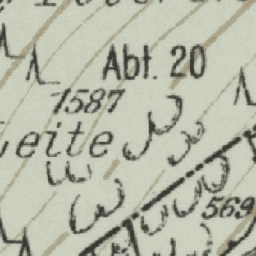 Abt. 20
1587
eite
569